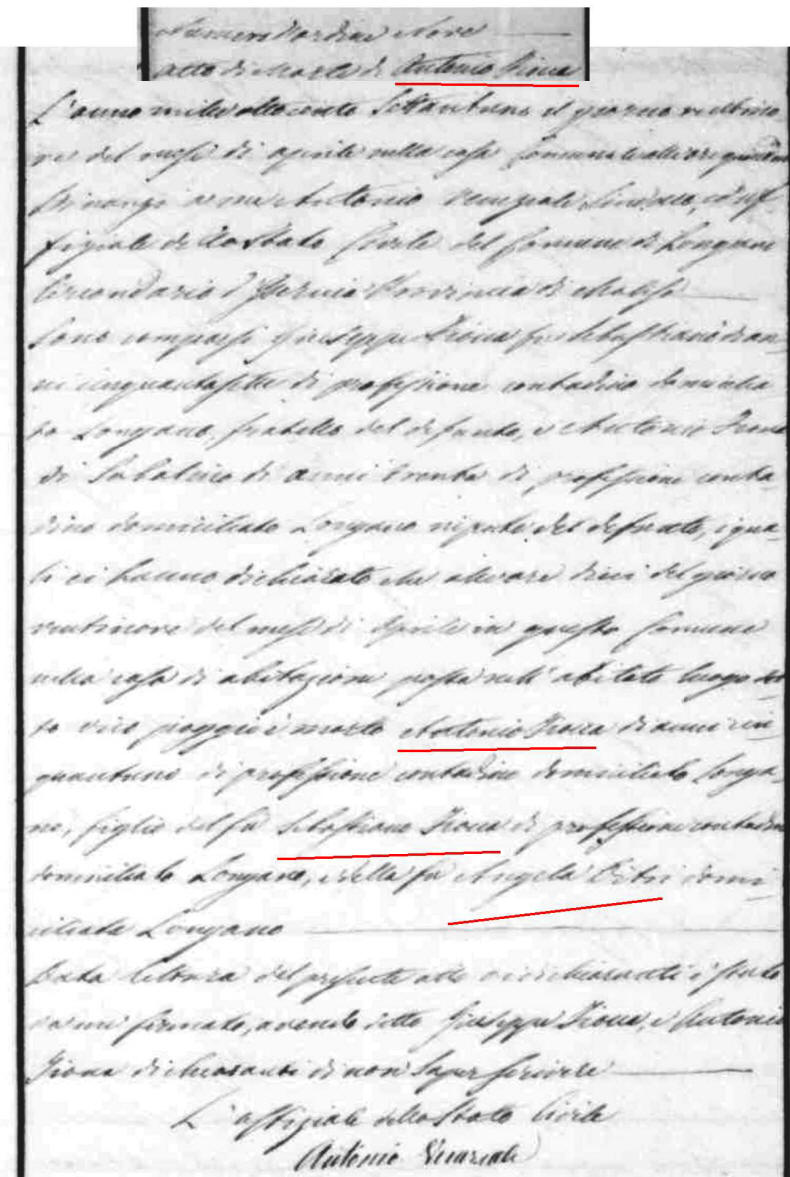 Numero d'ordine Nove
atto di Morte di Antonio Fiocca
L'anno mille ottocento Settantuno il giorno ventino
ve del mese di aprile nella casa Comunale alle ore quindici
Dinanzi a me Antonio Veneziale Sindaco, ed uf
fiziale dello Stato Civile del Comune di Longano
Circondario d'Isernia Provincia di Molise
Sono comparsi Giuseppe Fiocca fu Sebastiano di an
ni cinquantasette di professione contadino domicilia
to Longano, fratello del defunto, e Antonio Fiocca
di Sabatino di anni trenta di professione conta
dino domiciliato Longano nipote del defunto, i qua
li ci hanno dichiarato che alle ore dieci del giorno
ventinove del mese di Aprile in questo Comune
nella casa di abitazione posta nell'abitato luogo det
to vico è morto Antonio Fiocca di anni cin
quantuno di professione contadino domiciliato Longa
no, figlio del fu Sebastiano Fiocca di professione contadino
domiciliato Longano, e della fu Angela Vitri domi
ciliata Longano
Data lettura del presente atto ai dichiaranti è stato
da me firmato, avendo detto Giuseppe Fiocca, e Antonio
Fiocca dichiaranti di non saper scrivere
L'uffiziale dello Stato Civile
Antonio Veneziale